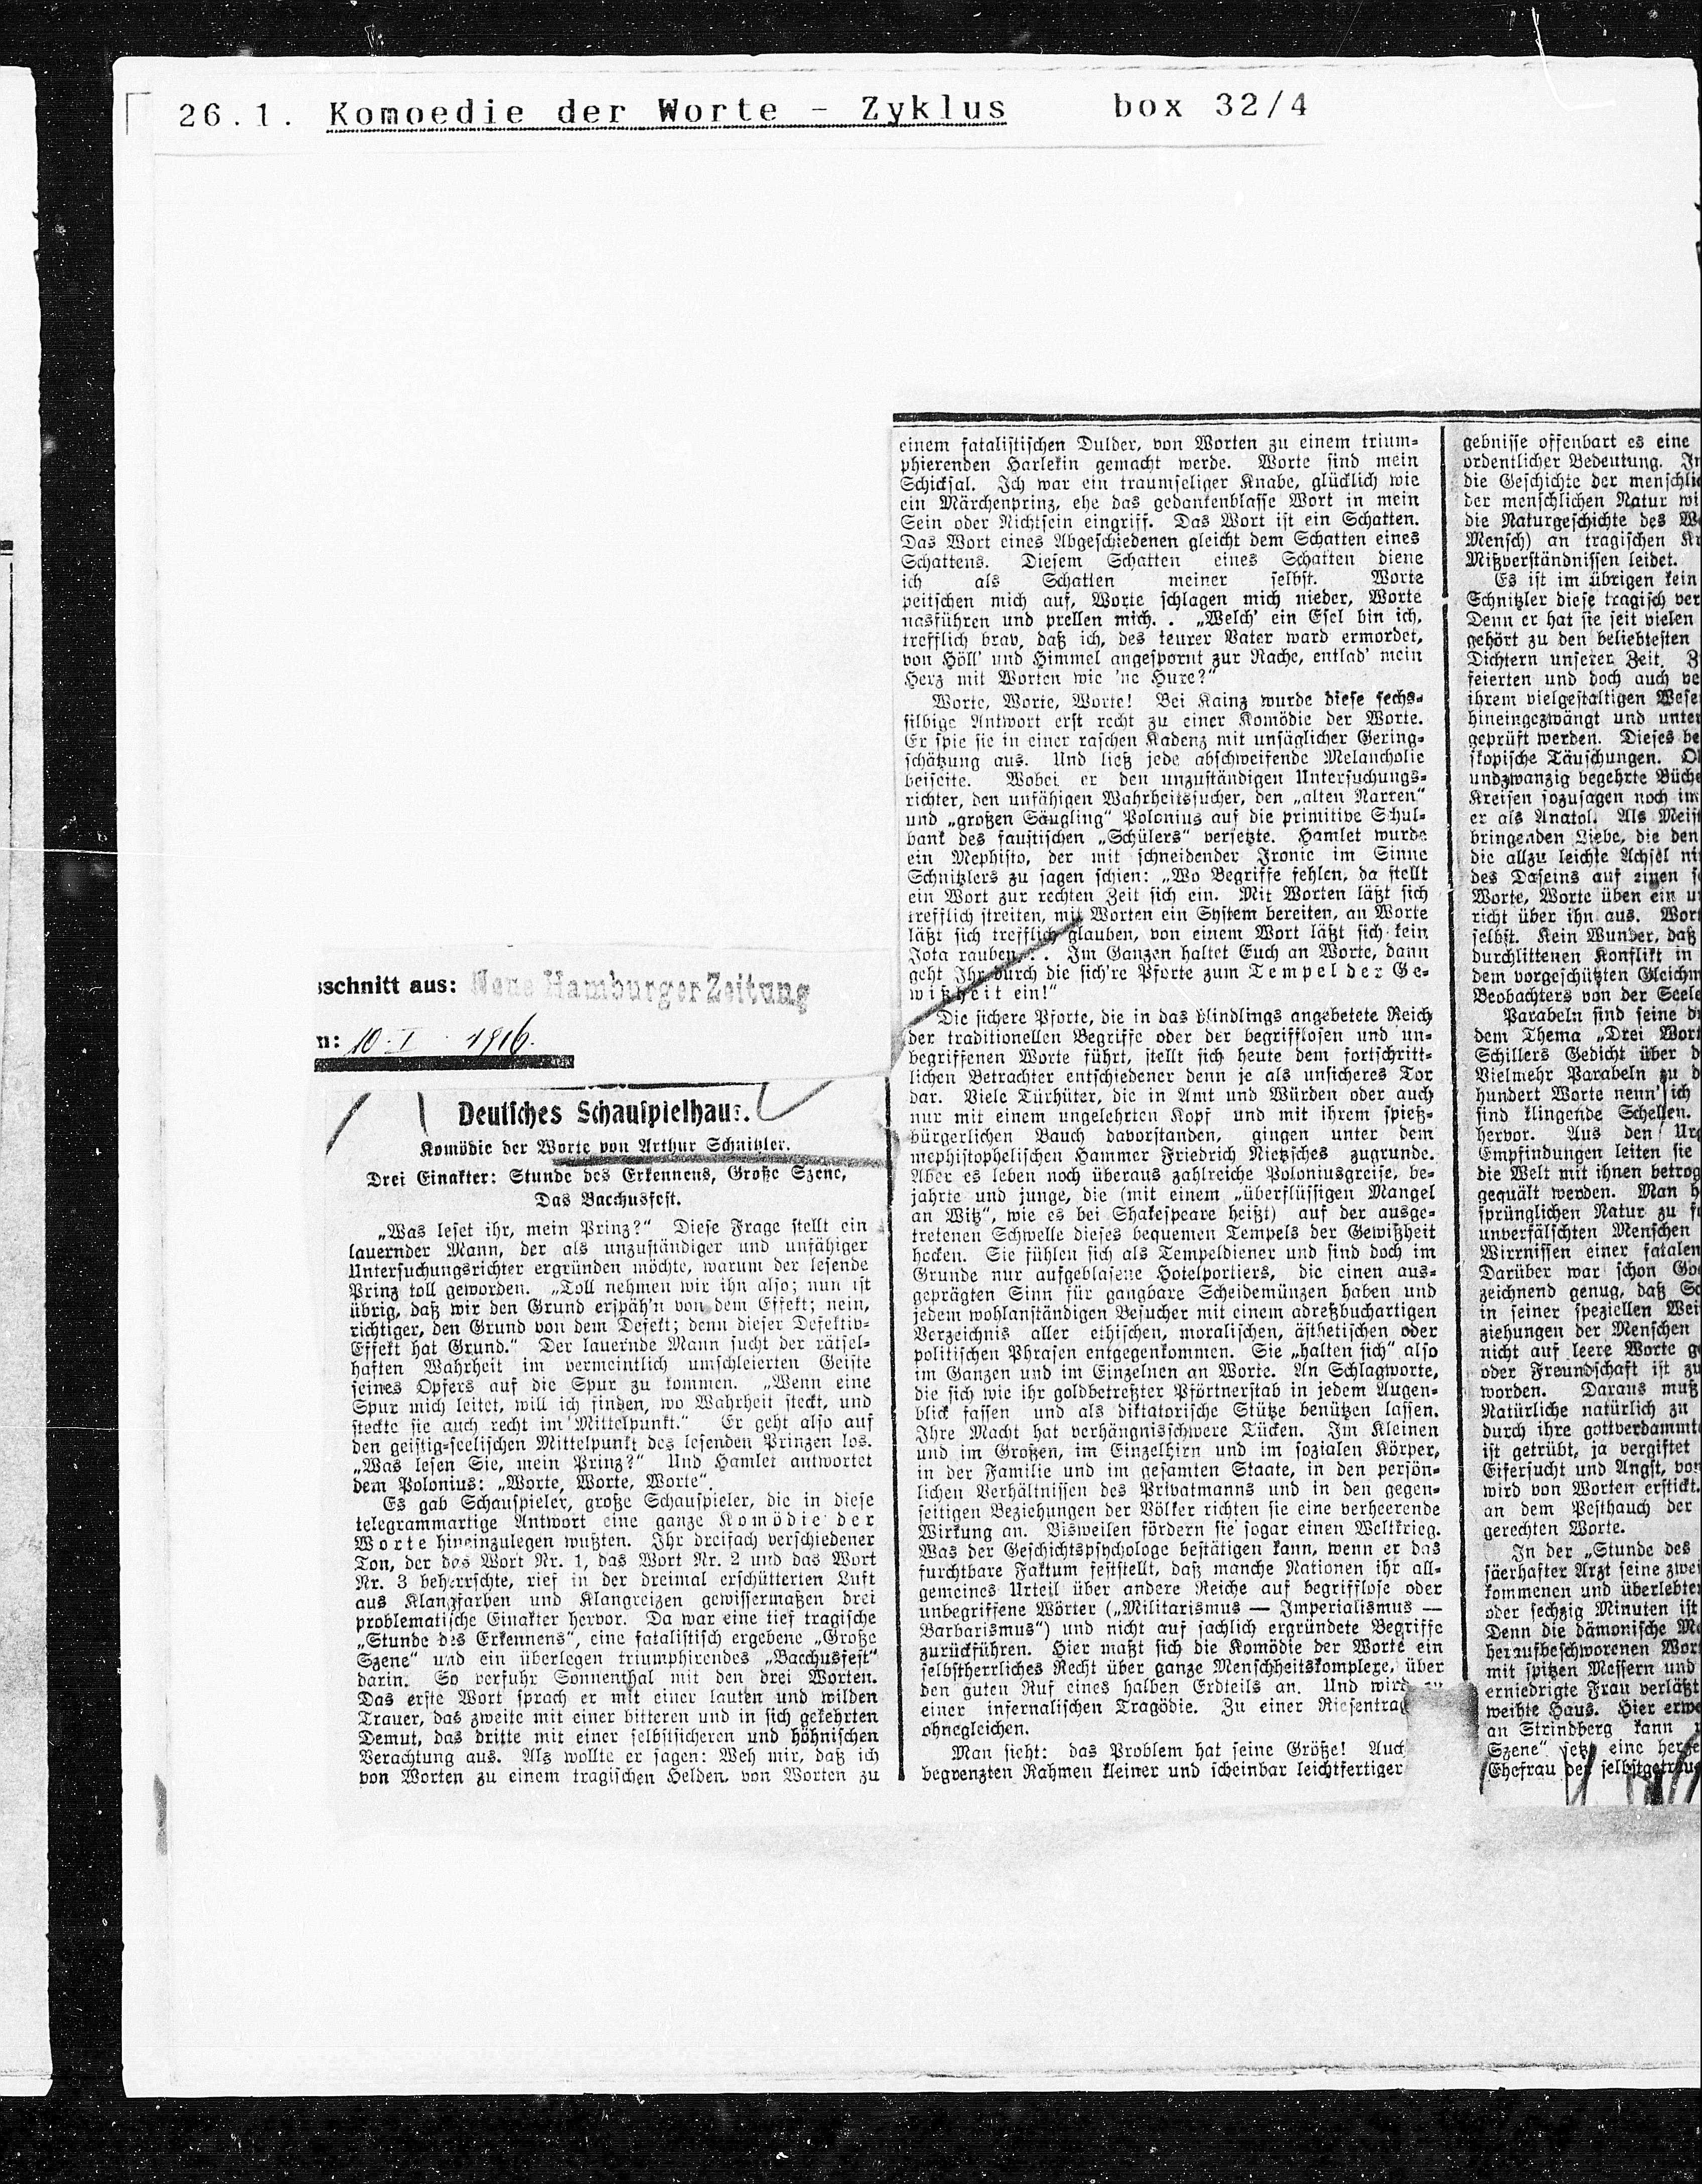 26.1. Komoedie der Worte - Zyklus box 32/4
sschnitt aus: Neue Hamburger Zeitung
n: 10. I. 1916.
Deutsches Schauspielhaus.
Komödie der Worte von Arthur Schnitzler.
Drei Einakter: Stunde des Erkennens, Große Szene,
Das Bacchusfest.
„Was leset ihr, mein Prinz?“ Diese Frage stellt ein
lauernder Mann, der als unzuständiger und unfähiger
Untersuchungsrichter ergründen möchte, warum der lesende
Prinz toll geworden. „Toll nehmen wir ihn also; nun ist
übrig, daß wir den Grund erspäh'n von dem Effekt; nein,
richtiger, den Grund von dem Defekt; denn dieser Defektiv-
Effekt hat Grund.“ Der lauernde Mann sucht der rätsel-
haften Wahrheit im vermeintlich umschleierten Geiste
seines Opfers auf die Spur zu kommen. „Wenn eine
Spur mich leitet, will ich finden, wo Wahrheit steckt, und
steckte sie auch recht im Mittelpunkt.“ Er geht also auf
den geistig-seelischen Mittelpunkt des lesenden Prinzen los.
„Was lesen Sie, mein Prinz?“ Und Hamlet antwortet
dem Polonius: „Worte, Worte, Worte“.
Es gab Schauspieler, große Schauspieler, die in diese
telegrammartige Antwort eine ganze Komödie der
Worte hineinzulegen wußten. Ihr dreifach verschiedener
Ton, der das Wort Nr. 1, das Wort Nr. 2 und das Wort
Nr. 3 beherrschte, rief in der dreimal erschütterten Luft
aus Klangfarben und Klangreizen gewissermaßen drei
problematische Einakter hervor. Da war eine tief tragische
„Stunde des Erkennens“, eine fatalistisch ergebene „Große
Szene“ und ein überlegen triumphirendes „Bacchusfest“
darin. So verfuhr Sonnenthal mit den drei Worten.
Das erste Wort sprach er mit einer lauten und wilden
Trauer, das zweite mit einer bitteren und in sich gekehrten
Demut, das dritte mit einer selbstsicheren und höhnischen
Verachtung aus. Als wollte er sagen: Weh mir, daß ich
von Worten zu einem tragischen Helden, von Worten zu
einem fatalistischen Dulder, von Worten zu einem trium-
phierenden Harlekin gemacht werde. Worte sind mein
Schicksal. Ich war ein traumseliger Knabe, glücklich wie
ein Märchenprinz, ehe das gedankenblasse Wort in mein
Sein oder Nichtsein eingriff. Das Wort ist ein Schatten.
Das Wort eines Abgeschiedenen gleicht dem Schatten eines
Schattens. Diesem Schatten eines Schatten diene
ich als Schatten meiner selbst. Worte
peitschen mich auf, Worte schlagen mich nieder, Worte
nasführen und prellen mich. . „Welch' ein Esel bin ich,
trefflich brav, daß ich, des teurer Vater ward ermordet,
von Höll' und Himmel angespornt zur Rache, entlad' mein
Herz mit Worten wie 'ne Hure?“
Worte, Worte, Worte! Bei Kainz wurde diese sechs-
silbige Antwort erst recht zu einer Komödie der Worte.
Er spie sie in einer raschen Kadenz mit unsäglicher Gering-
schätzung aus. Und ließ jede abschweifende Melancholie
beiseite. Wobei er den unzuständigen Untersuchungs-
richter, den unfähigen Wahrheitssucher, den „alten Narren“
und „großen Säugling“ Polonius auf die primitive Schul-
bank des faustischen „Schülers“ versetzte. Hamlet wurde
ein Mephisto, der mit schneidender Ironie im Sinne
Schnitzlers zu sagen schien: „Wo Begriffe fehlen, da stellt
ein Wort zur rechten Zeit sich ein. Mit Worten läßt sich
trefflich streiten, mit Worten ein System bereiten, an Worte
läßt sich trefflich glauben, von einem Wort läßt sich kein
Jota rauben. . . Im Ganzen haltet Euch an Worte, dann
geht Ihr durch die sich're Pforte zum Tempel der Ge-
wißheit ein!“
Die sichere Pforte, die in das blindlings angebetete Reich
der traditionellen Begriffe oder der begrifflosen und un-
begriffenen Worte führt, stellt sich heute dem fortschritt-
lichen Betrachter entschiedener denn je als unsicheres Tor
dar. Viele Türhüter, die in Amt und Würden oder auch
nur mit einem ungelehrten Kopf und mit ihrem spieß-
bürgerlichen Bauch davorstanden, gingen unter dem
mephistophelischen Hammer Friedrich Nietzsches zugrunde.
Aber es leben noch überaus zahlreiche Poloniusgreise, be-
jahrte und junge, die (mit einem „überflüssigen Mangel
an Witz“, wie es bei Shakespeare heißt) auf der ausge-
tretenen Schwelle dieses bequemen Tempels der Gewißheit
hocken. Sie fühlen sich als Tempeldiener und sind doch im
Grunde nur aufgeblasene Hotelportiers, die einen aus-
geprägten Sinn für gangbare Scheidemünzen haben und
jedem wohlanständigen Besucher mit einem adreßbuchartigen
Verzeichnis aller ethischen, moralischen, ästhetischen oder
politischen Phrasen entgegenkommen. Sie „halten sich“ also
im Ganzen und im Einzelnen an Worte. An Schlagworte,
die sich wie ihr goldbetreßter Pförtnerstab in jedem Augen-
blick fassen und als diktatorische Stütze benützen lassen.
Ihre Macht hat verhängnisschwere Tücken. Im Kleinen
und im Großen, im Einzelhirn und im sozialen Körper,
in der Familie und im gesamten Staate, in den persön-
lichen Verhältnissen des Privatmanns und in den gegen-
seitigen Beziehungen der Völker richten sie eine verheerende
Wirkung an. Bisweilen fördern sie sogar einen Weltkrieg.
Was der Geschichtspsychologe bestätigen kann, wenn er das
furchtbare Faktum feststellt, daß manche Nationen ihr all-
gemeines Urteil über andere Reiche auf begrifflose oder
unbegriffene Wörter („Militarismus — Imperialismus —
Barbarismus“) und nicht auf sachlich ergründete Begriffe
zurückführen. Hier maßt sich die Komödie der Worte ein
selbstherrliches Recht über ganze Menschheitskomplexe, über
den guten Ruf eines halben Erdteils an. Und wird
einer infernalischen Tragödie. Zu einer Riesentrag
ohnegleichen.
Man sieht: das Problem hat seine Größe! Auch
begrenzten Rahmen kleiner und scheinbar leichtfertiger
gebnisse offenbart es eine
ordentlicher Bedeutung. In
die Geschichte der menschlic
der menschlichen Natur wi
die Naturgeschichte des W
Mensch) an tragischen Kr
Mißverständnissen leidet.
Es ist im übrigen kein
Schnitzler diese tragisch ver
Denn er hat sie seit vielen
gehört zu den beliebtesten
Dichtern unserer Zeit. Z
feierten und doch auch ve
ihrem vielgestaltigen Wese
hineingezwängt und unter
geprüft werden. Dieses be
skopische Täuschungen. O
undzwanzig begehrte Büche
Kreisen sozusagen noch im
er als Anatol. Als Meist
bringenden Liebe, die den
die allzu leichte Achsel ni
des Daseins auf einen s
Worte, Worte üben ein u
richt über ihn aus. Wor
selbst. Kein Wunder, daß
durchlittenen Konflikt in
dem vorgeschützten Gleichm
Beobachters von der Seele
Parabeln sind seine d
dem Thema „Drei Wor
Schillers Gedicht über d
Vielmehr Parabeln zu d
hundert Worte nenn' ich
sind klingende Schellen.
hervor. Aus den Ur
Empfindungen leiten sie
die Welt mit ihnen betrog
gequält werden. Man h
sprünglichen Natur zu f
unverfälschten Menschen
Wirrnissen einer fatalen
Darüber war schon Go
zeichnend genug, daß Sc
in seiner speziellen Wei
ziehungen der Menschen
nicht auf leere Worte g
oder Freundschaft ist zu
worden. Daraus muß
Natürliche natürlich zu
durch ihre gottverdammte
ist getrübt, ja vergiftet
Eifersucht und Angst, von
wird von Worten erstickt.
an dem Pesthauch der
gerechten Worte.
In der „Stunde des
säerhafter Arzt seine zwei
kommenen und überlebte
oder sechzig Minuten ist
Denn die dämonische Ma
heraufbeschworenen Wor
mit spitzen Messern und
erniedrigte Frau verläßt
weihte Haus. Hier erwe
an Strindberg kann
Szene“ setzt eine herge
Ehefrau den selbstgetr